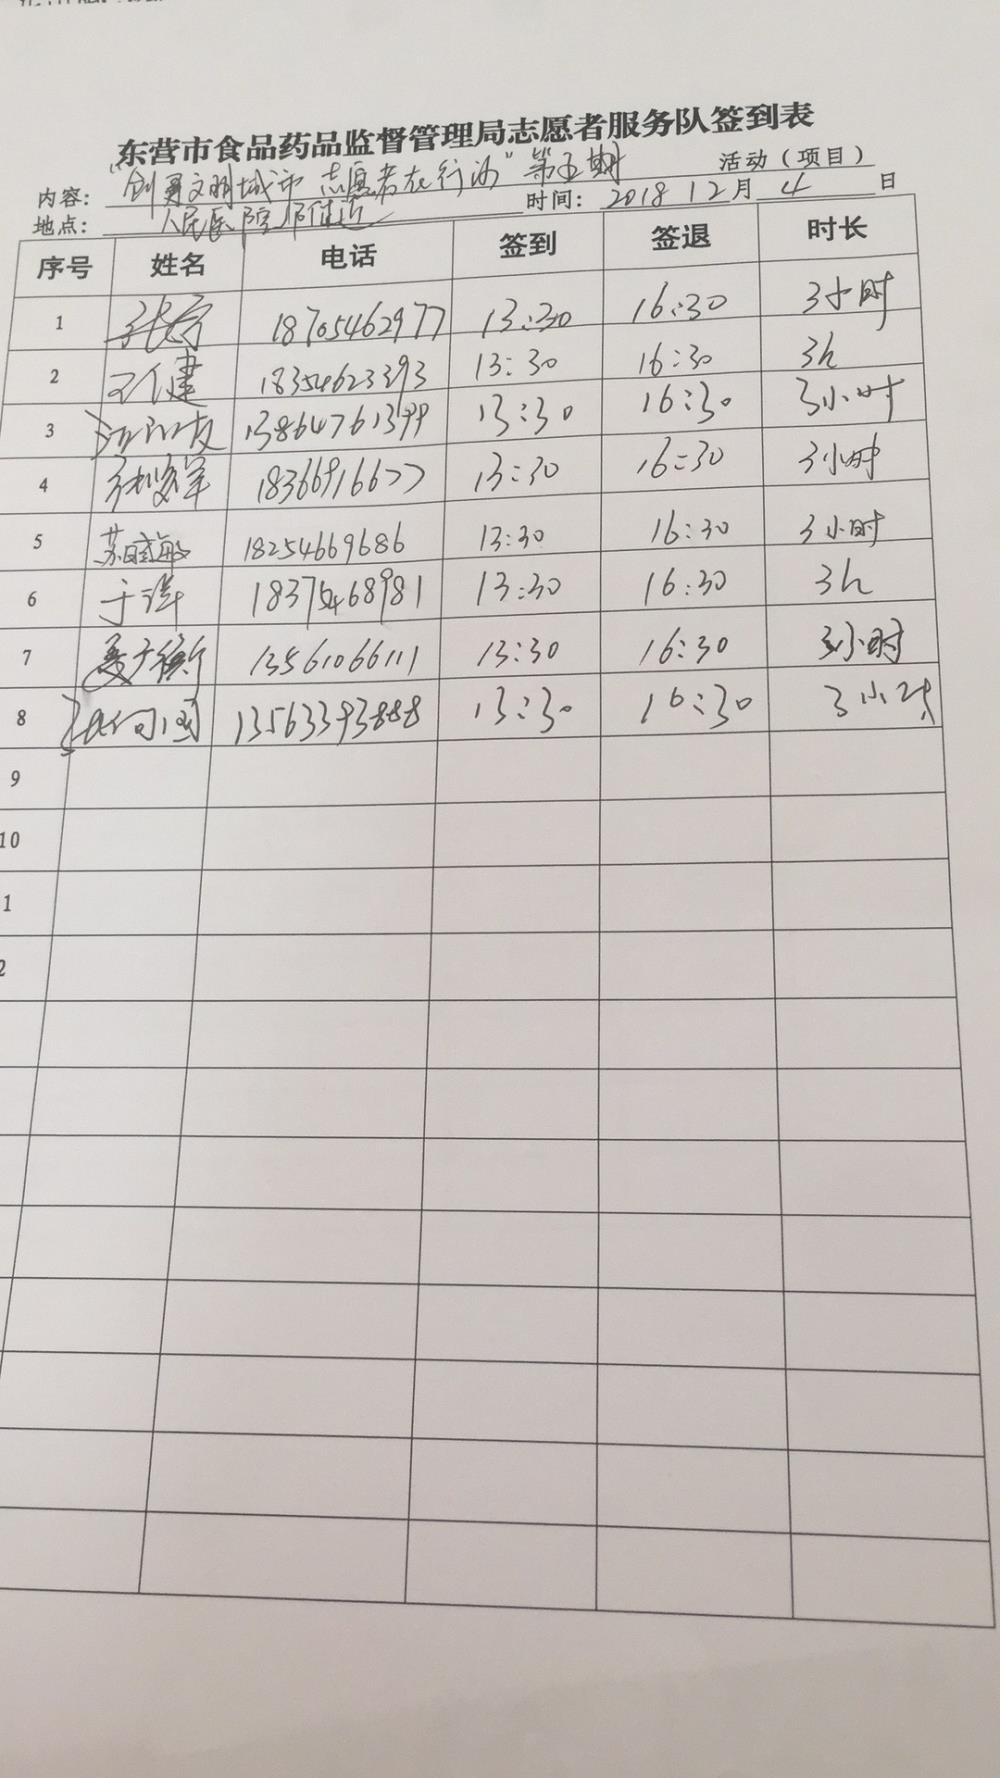 东营市食品药品监督管理局志愿者服务队签到表
内容： "创勇文明城市 志愿者在行动" 第五期 活动（项目）
地点： 人民医院附近 时间： 2018 12月 4 日
序号 姓名 电话 签到 签退 时长
1 18705462977 13:30 16:30 3小时
2 18354623393 13:30 16:30 3h
3 13864761399 13:30 16:30 3小时
4 18366916677 13:30 16:30 3小时
5 苏晓敏 18254669686 13:30 16:30 3小时
6 于洋 18375468981 13:30 16:30 3h
7 13561066111 13:30 16:30 3小时
8 13563393888 13:30 16:30 3小时
9
10
1
2